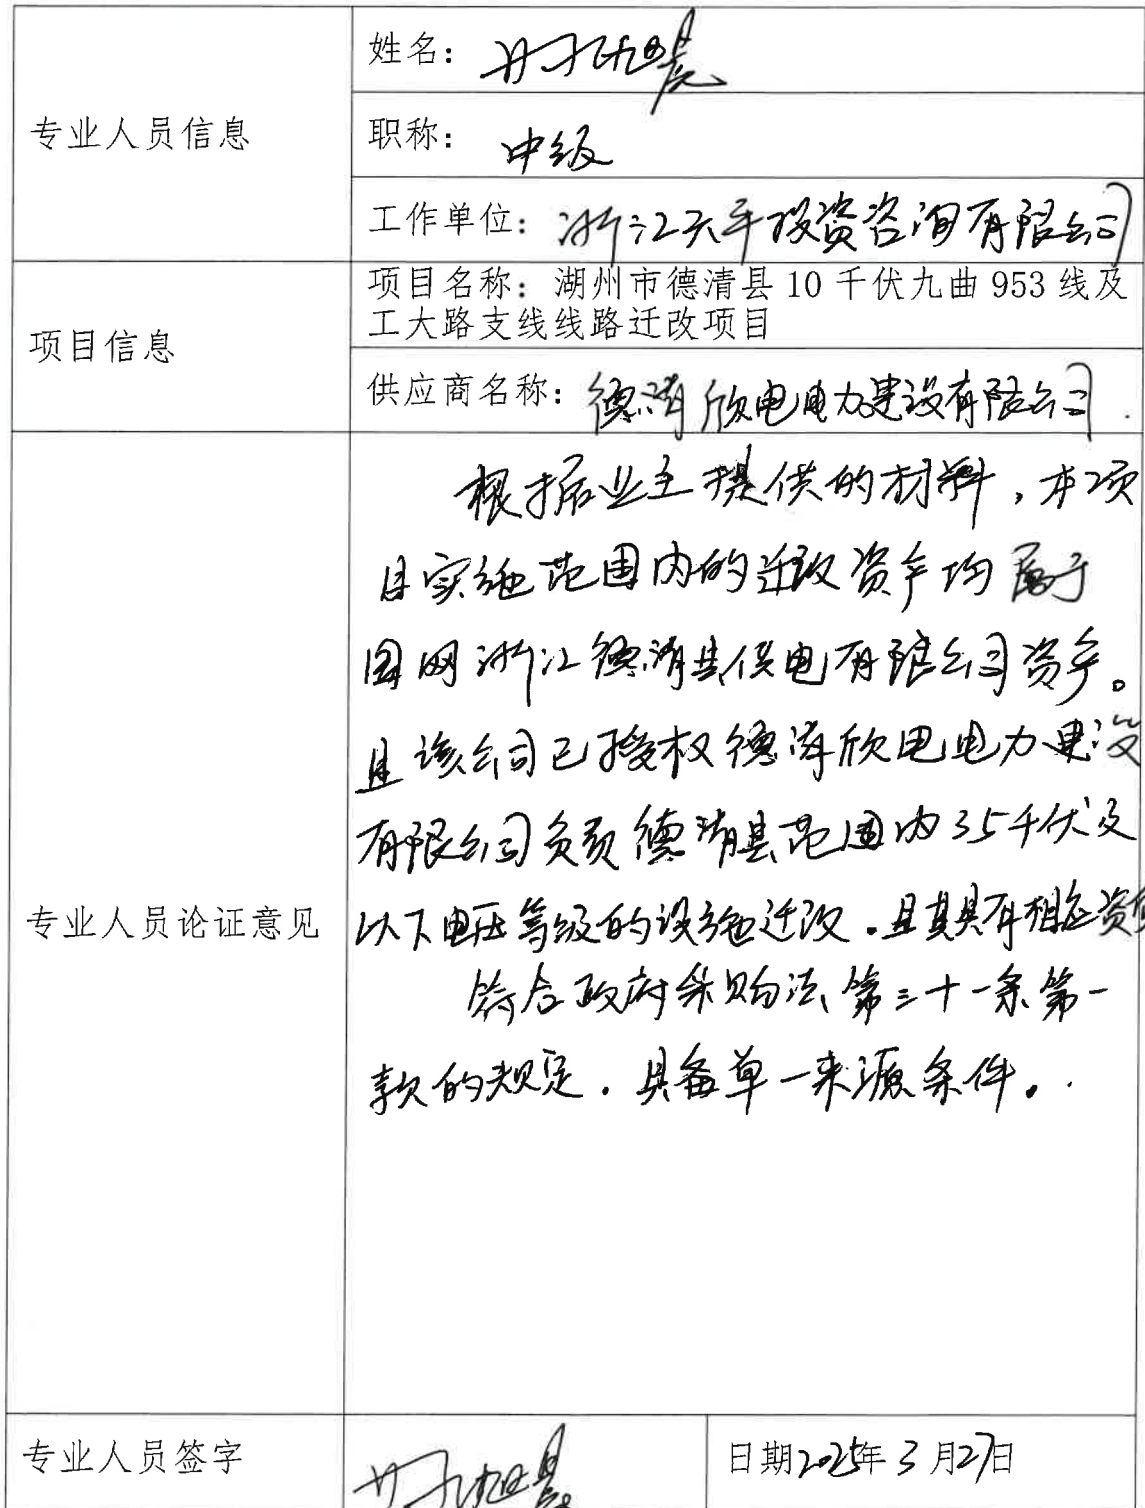 专业人员信息
姓名：
职称：中级
工作单位：浙江天平投资咨询有限公司
项目信息
项目名称：湖州市德清县10千伏九曲953线及
工大路支线线路迁改项目
供应商名称：德清欣电电力建设有限公司
专业人员论证意见
根据业主提供的材料，本项
目实施范围内的迁改资产均属于
国网浙江德清县供电有限公司资产。
且该公司已授权德清欣电电力建设
有限公司负责德清县范围内35千伏及
以下电压等级的设施迁改．且其具有相应资质
符合政府采购法第三十一条第一
款的规定．具备单一来源条件。
专业人员签字
日期2025年3月27日